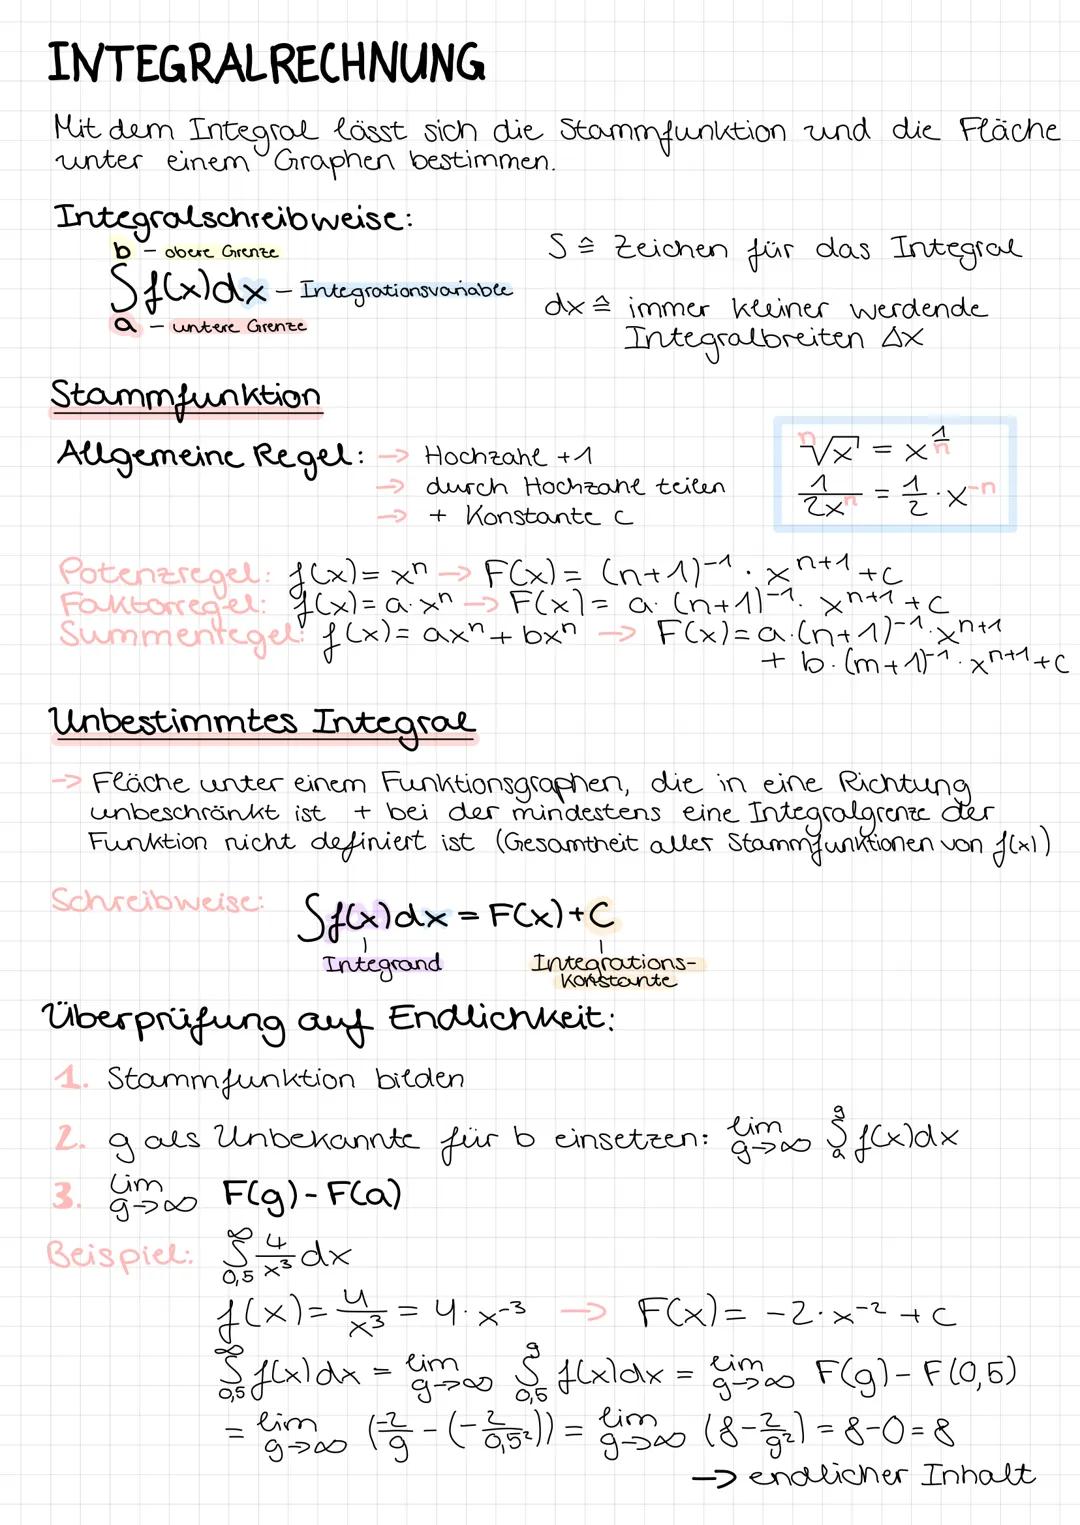 INTEGRALRECHNUNG
Mit dem Integral lässt sich die Stammfunktion und die Fläche
unter einem Graphen bestimmen.
Integralschreibweise:
b – obere Grenze
∫f(x)dx – Integrationsvariable
a – untere Grenze
S ≙ Zeichen für das Integral
dx ≙ immer kleiner werdende
Integralbreiten Δx
Stammfunktion
Allgemeine Regel: → Hochzahl +1
→ durch Hochzahl teilen
→ + Konstante c
ⁿ√x = x^(1/n)
1/(2xⁿ) = 1/2 · x⁻ⁿ
Potenzregel: f(x) = xⁿ → F(x) = (n+1)⁻¹ · xⁿ⁺¹ + c
Faktorregel: f(x) = a·xⁿ → F(x) = a·(n+1)⁻¹ · xⁿ⁺¹ + c
Summenregel: f(x) = axⁿ + bxⁿ → F(x) = a·(n+1)⁻¹·xⁿ⁺¹
+ b·(m+1)⁻¹·xⁿ⁺¹ + c
Unbestimmtes Integral
→ Fläche unter einem Funktionsgraphen, die in eine Richtung
unbeschränkt ist + bei der mindestens eine Integralgrenze der
Funktion nicht definiert ist (Gesamtheit aller Stammfunktionen von f(x))
Schreibweise: ∫f(x)dx = F(x)+C
Integrand Integrations-
konstante
Überprüfung auf Endlichkeit:
1. Stammfunktion bilden
2. g als Unbekannte für b einsetzen: lim g→∞ ∫ₐᵍ f(x)dx
3. lim g→∞ F(g) - F(a)
Beispiel: ∫_0,5^∞ 4/x³ dx
f(x) = 4/x³ = 4·x⁻³ → F(x) = -2·x⁻² + c
∫_0,5^∞ f(x)dx = lim g→∞ ∫_0,5^g f(x)dx = lim g→∞ F(g) - F(0,5)
= lim g→∞ (-2/g - (-2/0,5²)) = lim g→∞ (8 - 2/g²) = 8-0 = 8
→ endlicher Inhalt